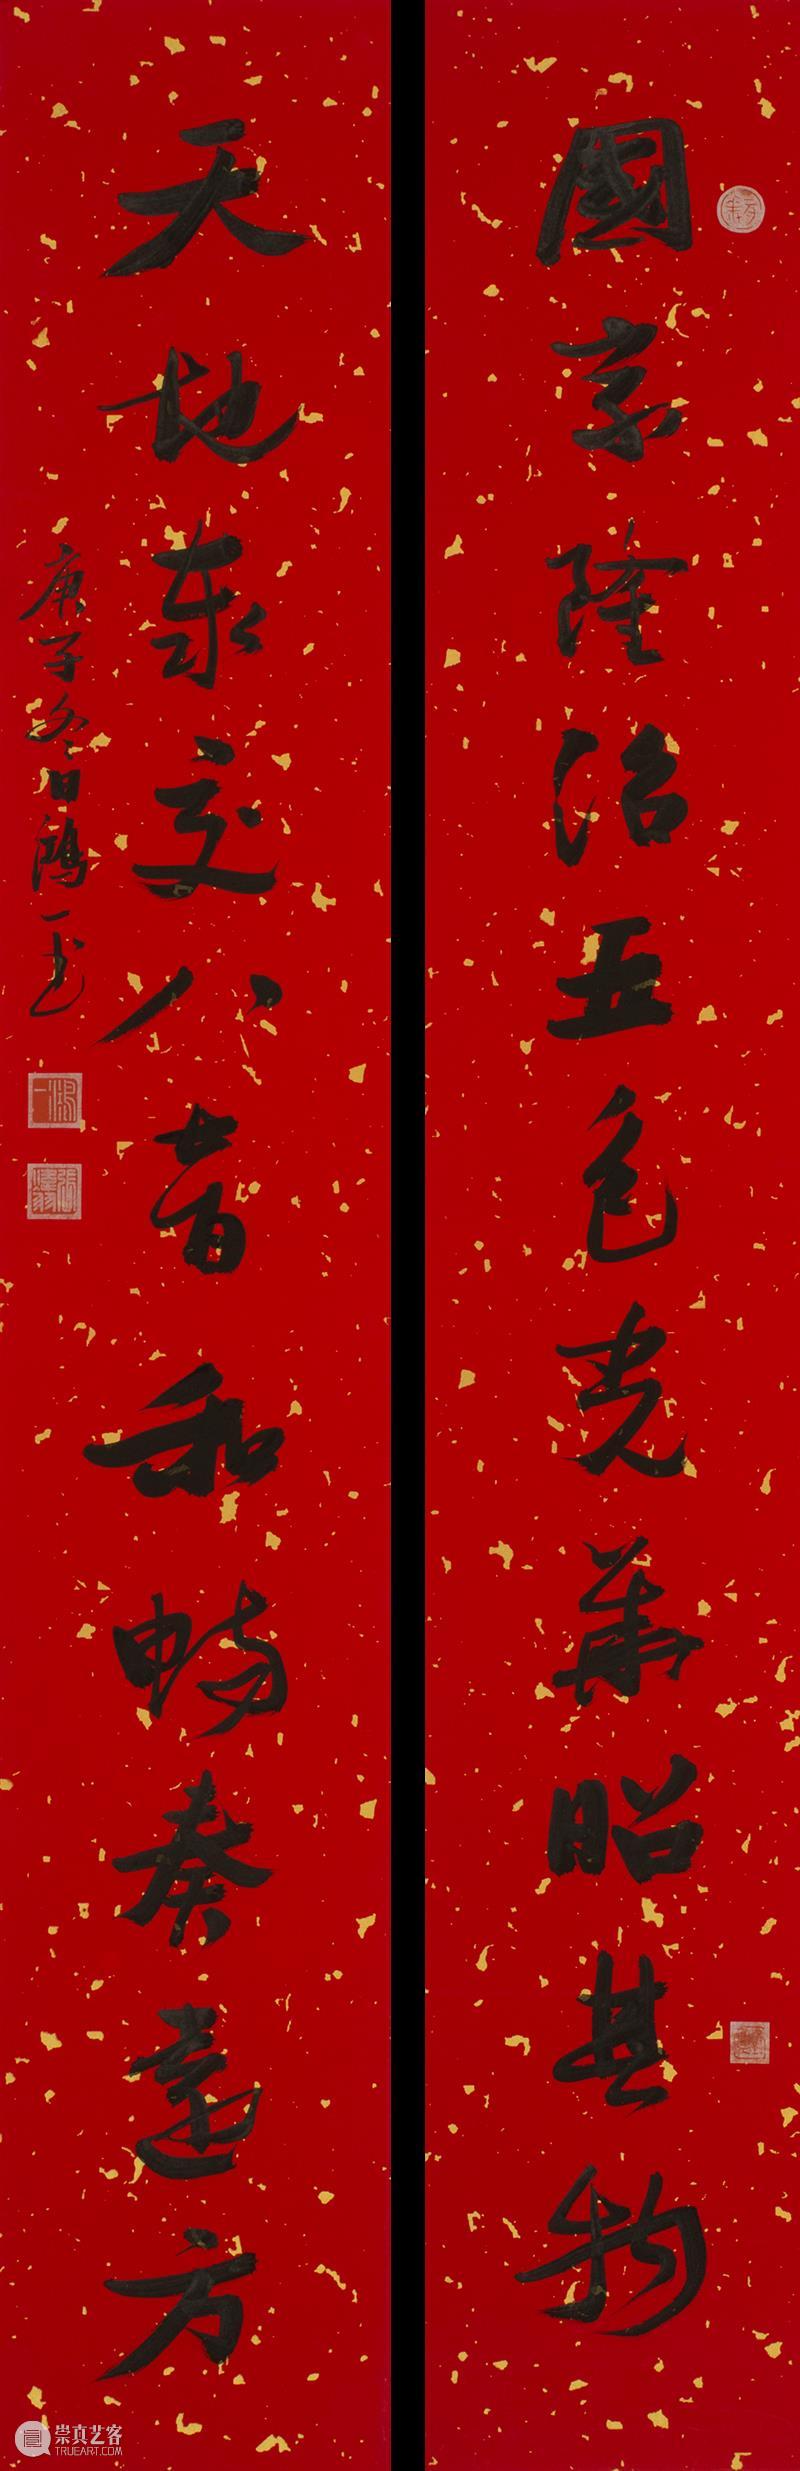 國家隆治五色光華昭其物
天地泰交八音和暢奏遠方
庚子冬日鴻一書
崇真艺客
TRUEART.COM